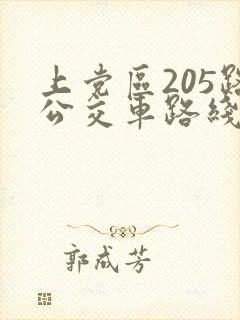 上党區205路
公交車路綫
郭成芳